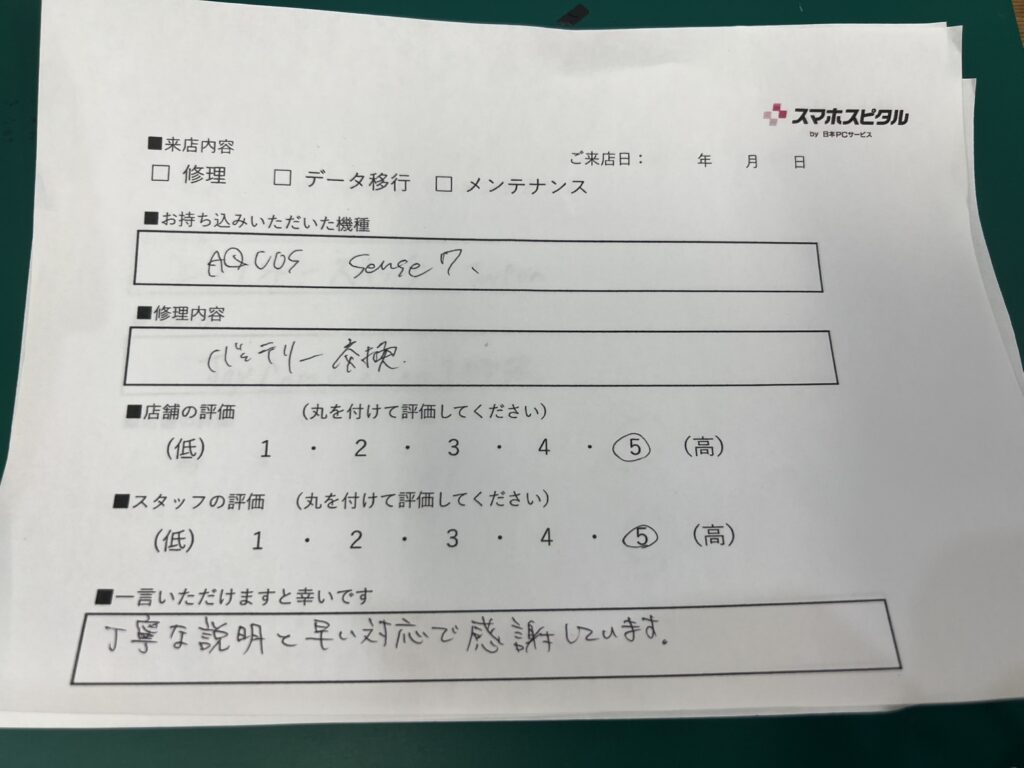 スマホスピタル
by 日本PCサービス
■来店内容
ご来店日： 年 月 日
□ 修理 □ データ移行 □ メンテナンス
■お持ち込みいただいた機種
AQUOS sense7、
■修理内容
バッテリー交換.
■店舗の評価 （丸を付けて評価してください）
（低） 1 ・ 2 ・ 3 ・ 4 ・ 5 （高）
■スタッフの評価 （丸を付けて評価してください）
（低） 1 ・ 2 ・ 3 ・ 4 ・ 5 （高）
■一言いただけますと幸いです
丁寧な説明と早い対応で感謝しています。